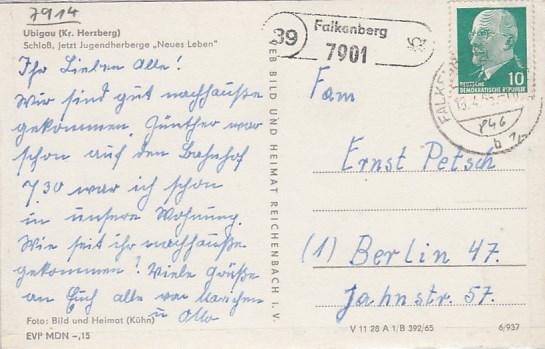 7914
Ubigau (Kr. Herzberg)
Schloß, jetzt Jugendherberge „Neues Leben"
Ihr Lieben Alle!
Wir sind gut nachhauße
gekommen. Günther war
schon auf den Bahnhof
7.30 war ich schon
in unsere Wohnung.
Wie seit ihr nachhauße
gekommen? Viele Grüße
an Euch alle von
u Otto
Foto: Bild und Heimat (Kühn)
EVP MDN -,15
VEB BILD UND HEIMAT REICHENBACH I. V.
39
Falkenberg
7901
DEUTSCHE
DEMOKRATISCHE REPUBLIK
10
FALKE
Fam
Ernst Petsch
(1) Berlin 47.
Jahnstr. 57.
V 11 28 A 1/B 392/65
6/937